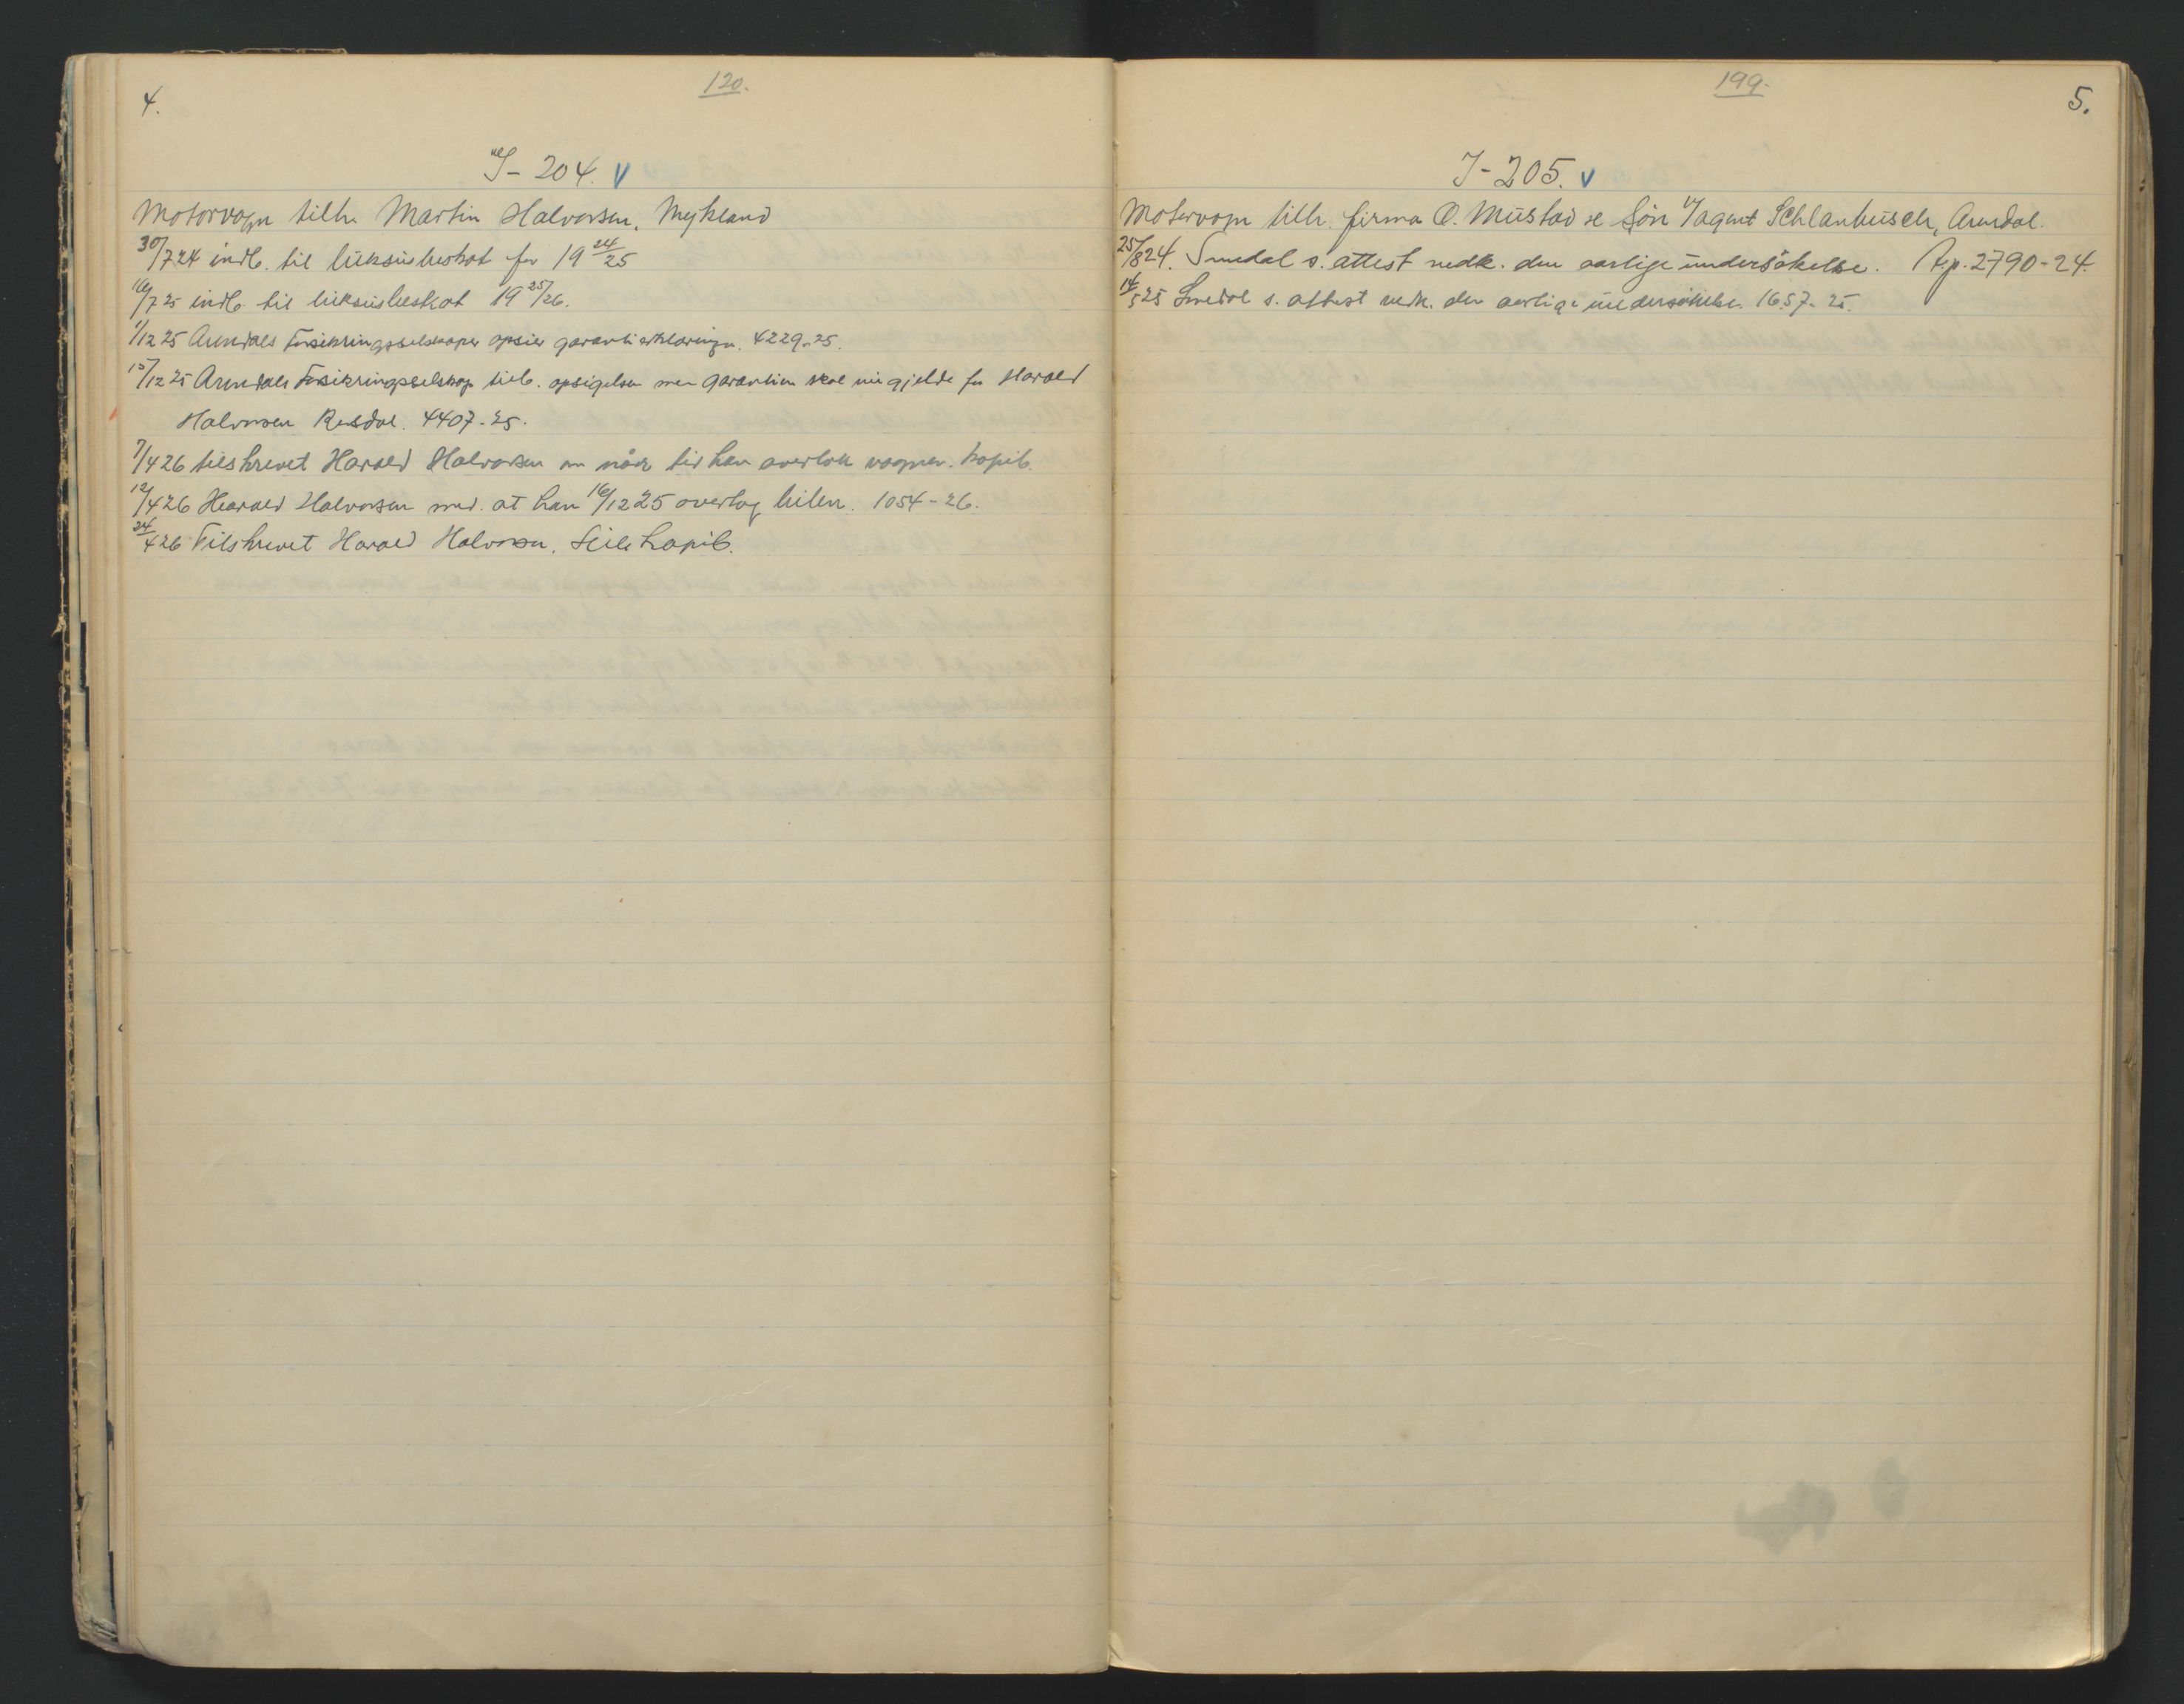 4.
120.
I-204. V
Motorvogn tilh. Martin Halvorsen, Mykland
30/7 24 indb. til luksusbeskat for 19 24/25
16/7 25 indb. til luksusbeskat 19 25/26.
1/12 25 Arendals Forsikringsselskaper opsier garantierklæringen. 4229-25.
15/12 25 Arendals Forsikringsselskap tilb. opsigelsen men garantien skal nu gjelde for Harald
Halvorsen Risdal. 4407-25.
7/4 26 tilskrevet Harald Halvorsen om når tid han overtok vognen. Kopib.
12/4 26 Harald Halvorsen med. at han 16/12 25 overtog bilen. 1054-26.
24/4 26 Tilskrevet Harald Halvorsen. Kopib.
199.
5.
I-205. V
Motorvogn tilh. firma O. Mustad & Sön v/agent Schlanbusch, Arendal.
25/8 24. Smedal s. attest vedk. den aarlige undersökelse. A.p. 2790-24.
14/5 25 Smedal s. attest vedk. den aarlige undersökelse. 1657-25.